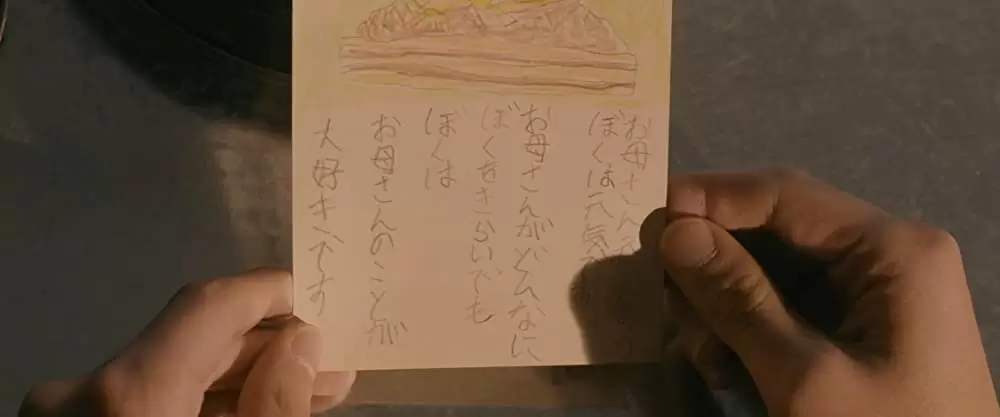 お母さん
ぼくは元気
お母さんがどんなに
ぼくをきらいでも
ぼくは
お母さんのことが
大好キです